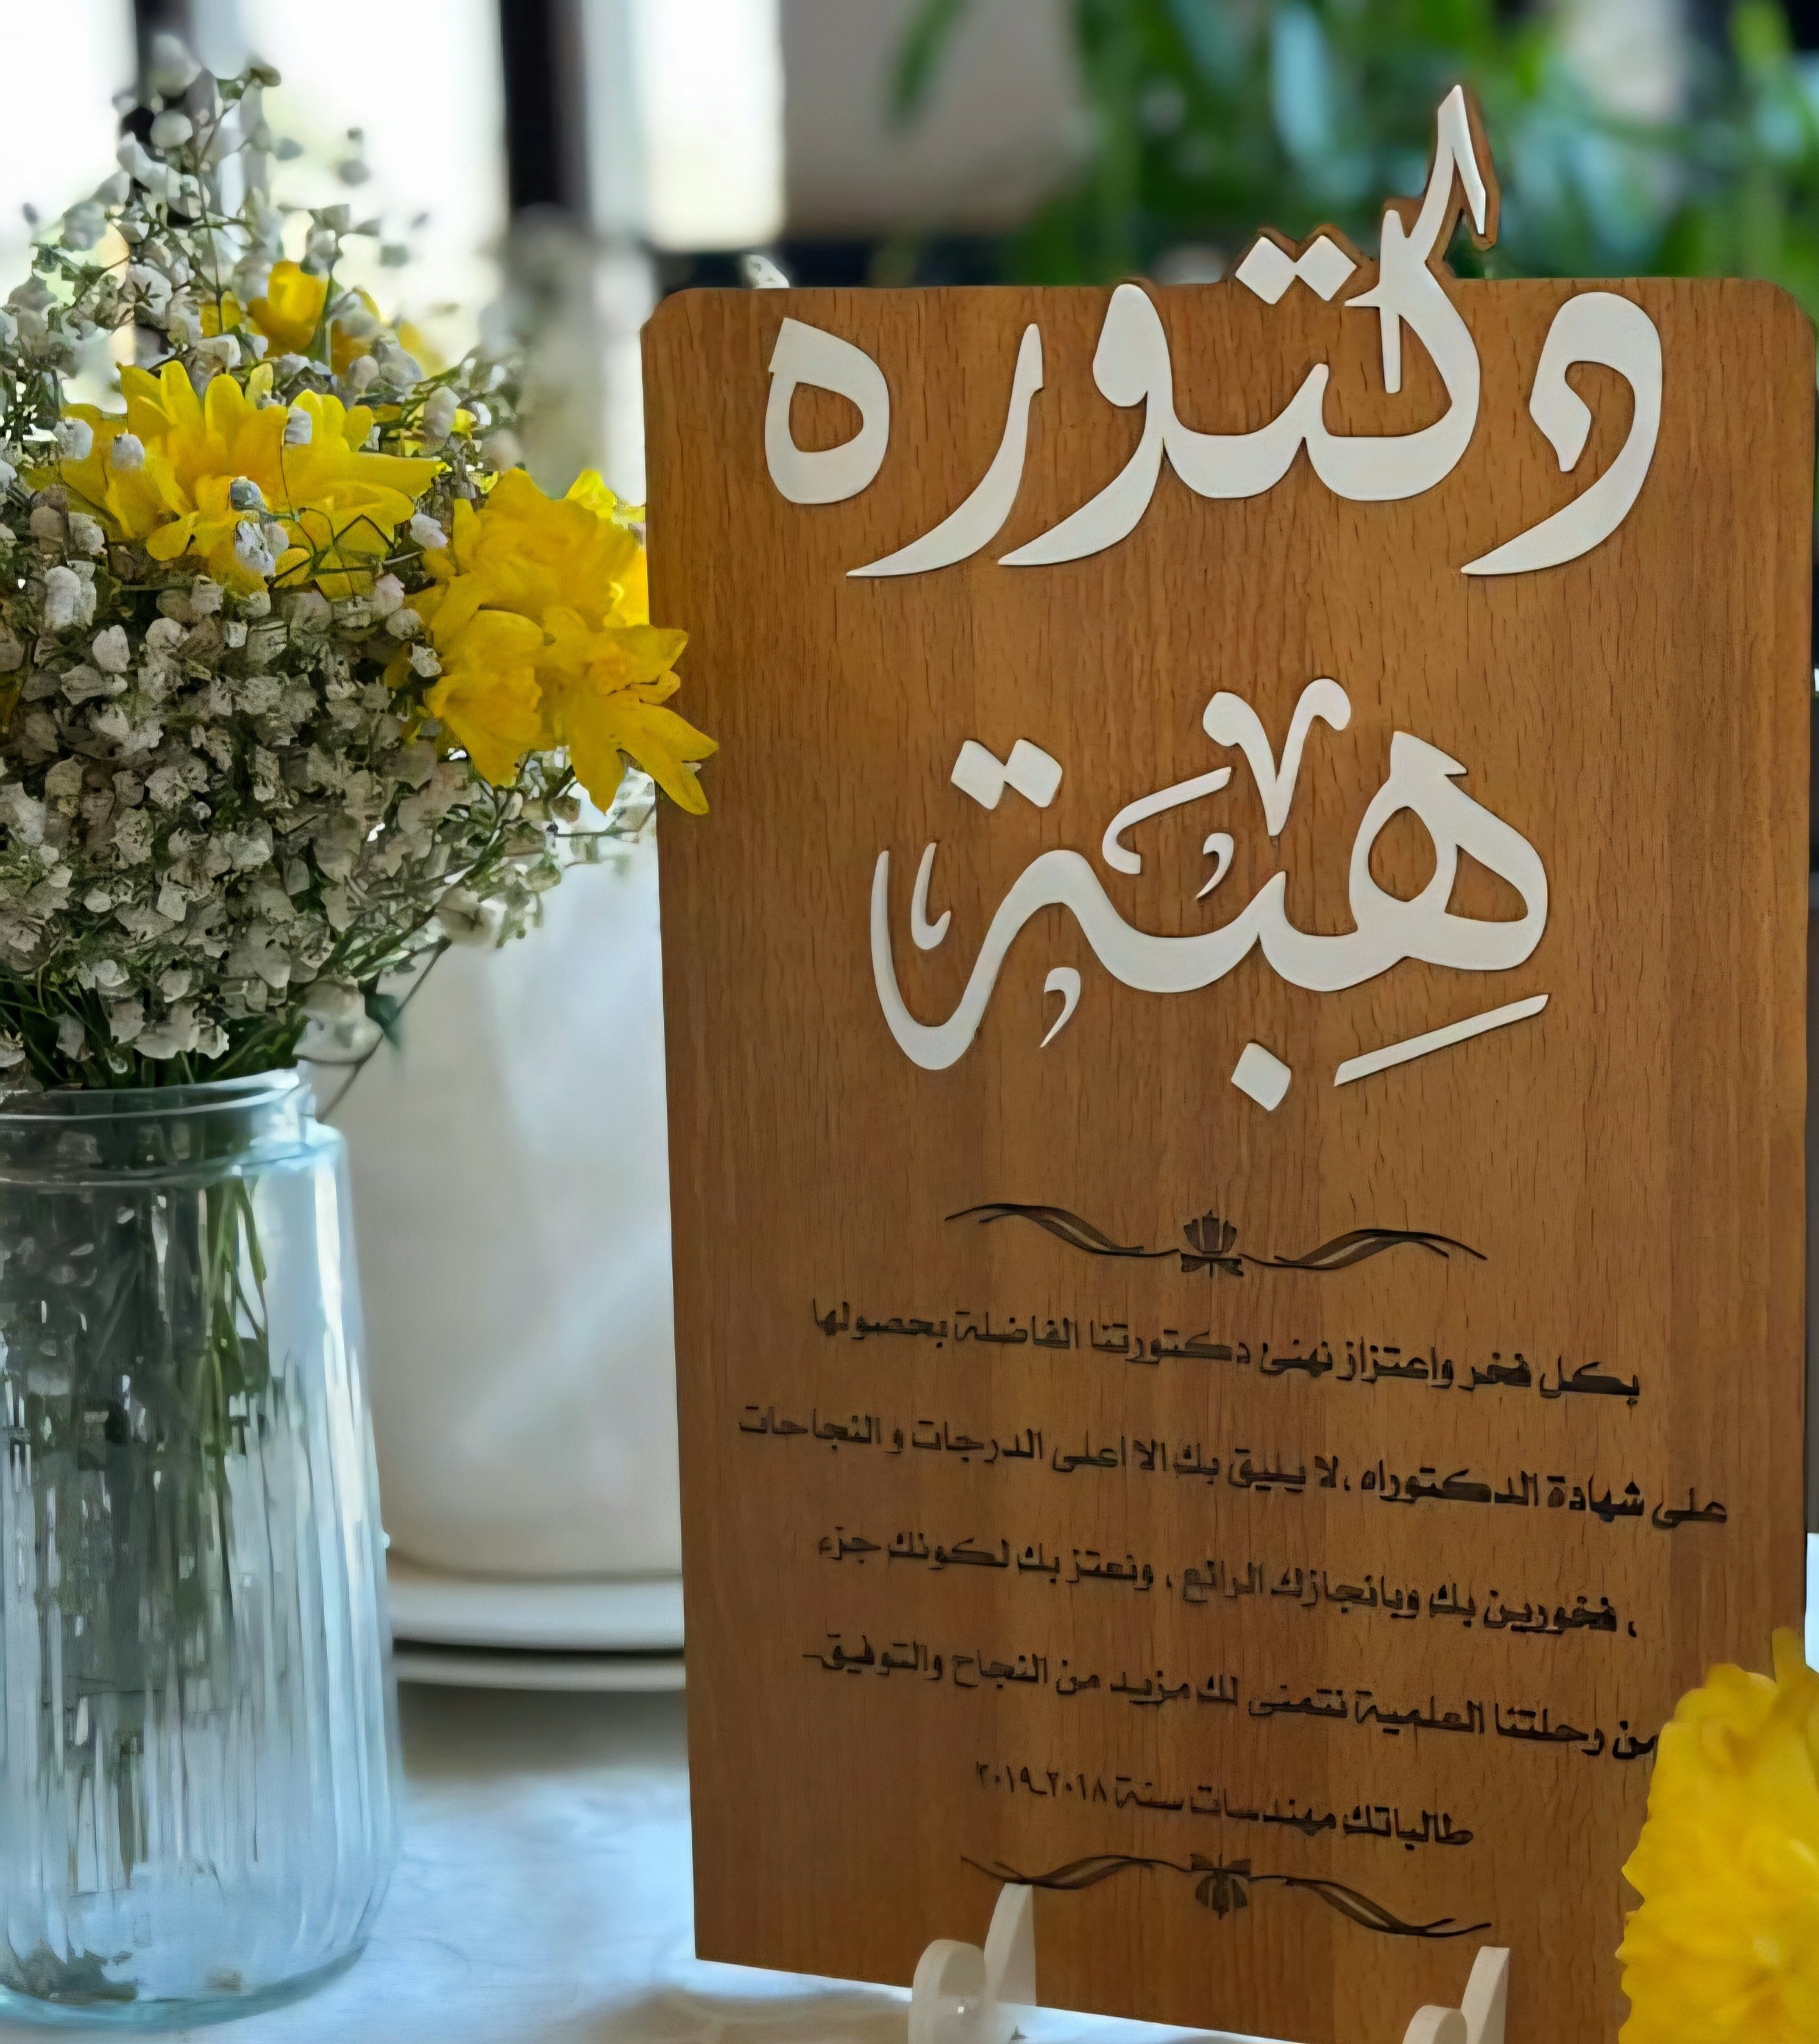 دكتوره
هِبَة
بكل فخر واعتزاز نهنئ دكتورتنا الفاضلة بحصولها
على شهادة الدكتوراه ،لا يليق بك الا اعلى الدرجات و النجاحات
، فخورين بك وبانجازك الرائع ، ونعتز بك لكونك جزء
من رحلتنا العلمية نتمنى لك مزيد من النجاح والتوفيق
طالباتك مهندسات سنة ٢٠١٨_٢٠١٩